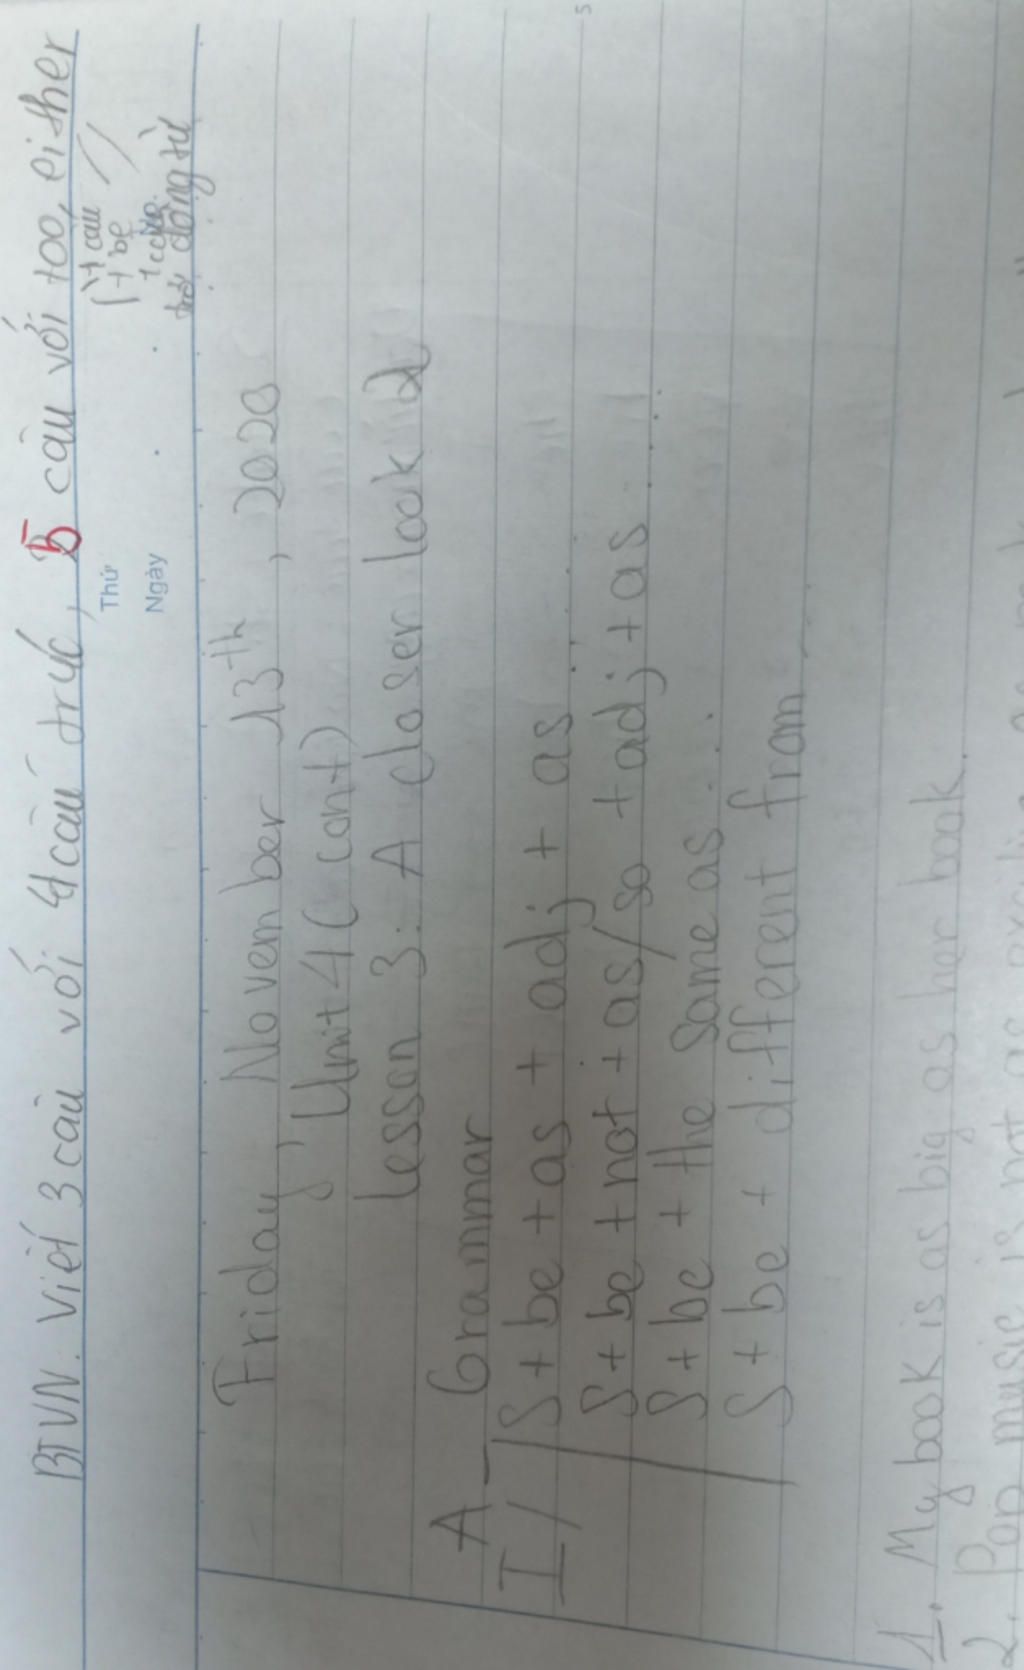 BTVN. Viết 3 câu với 4 cấu trúc, 5 câu với too, either
+ câu
+ be
động từ
Thứ
Ngày
Friday, November 13th, 2020
Unit 4 (cont)
Lesson 3: A closer look 2
A - Grammar
I/ S + be + as + adj + as ....
S + be + not + as/so + adj + as ....
S + be + the same as ...
S + be + different from ...
1. My book is as big as her book.
2. Pop music is not as
5